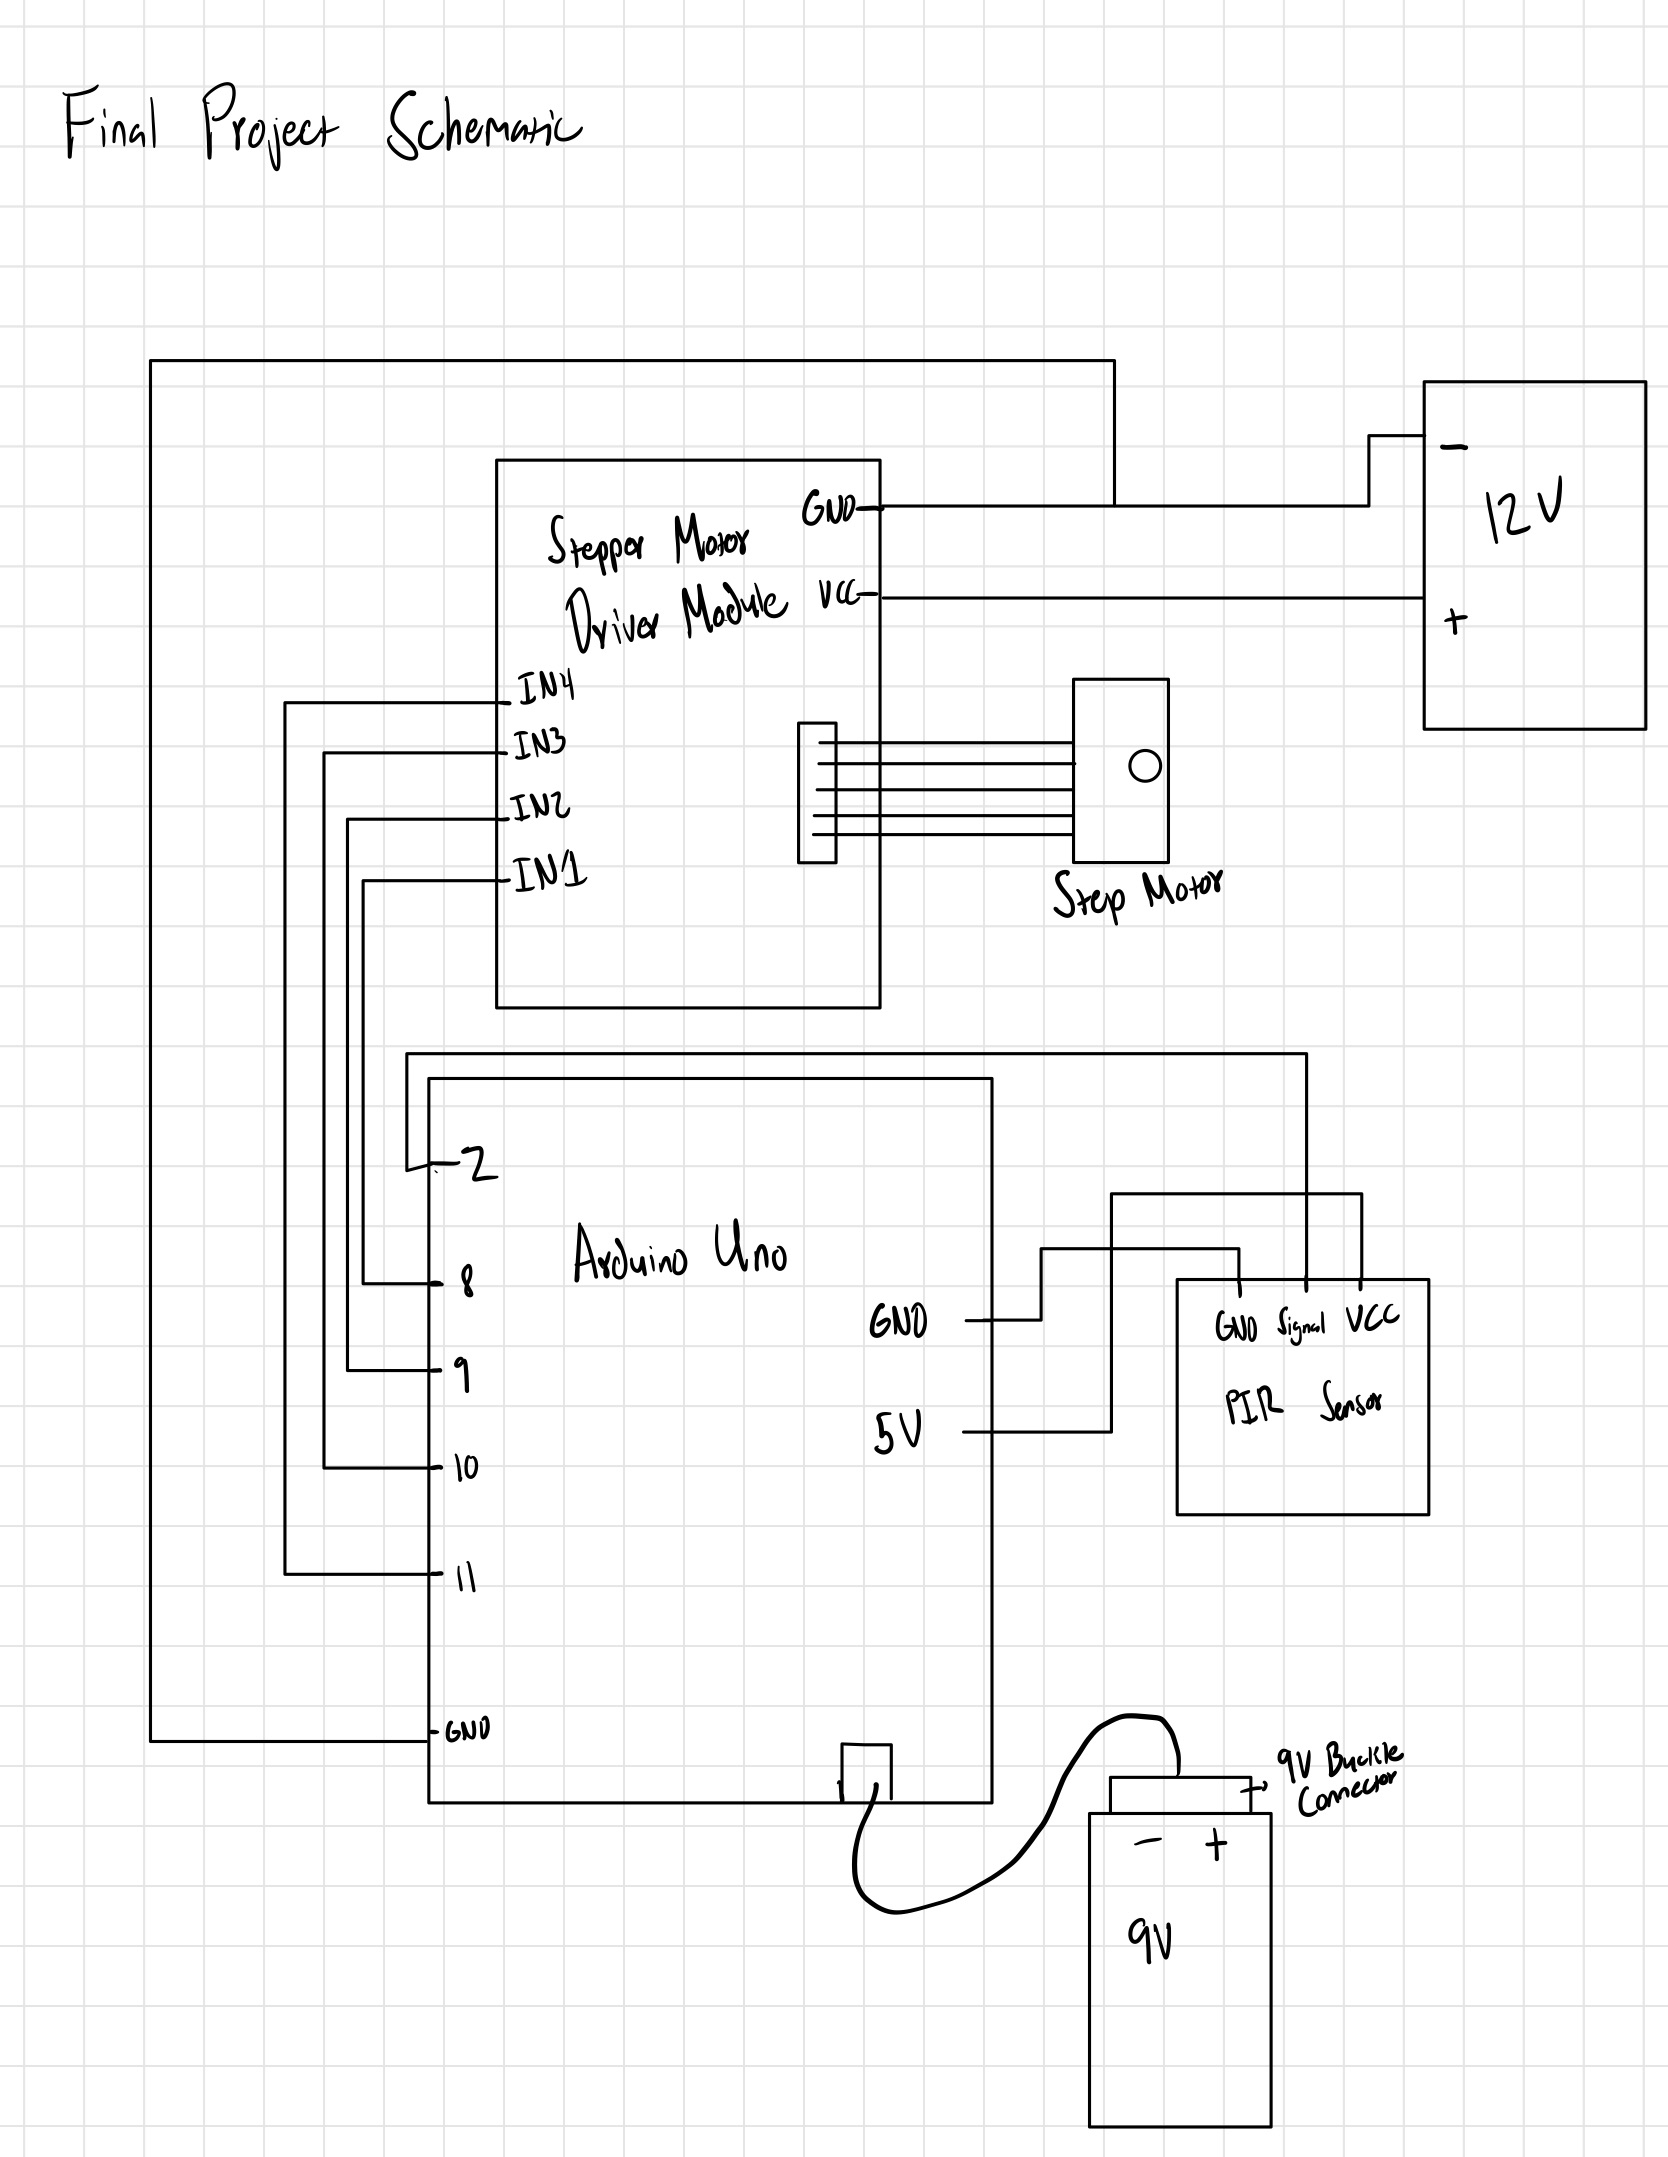 Final Project Schematic
-
12V
+
GND
Stepper Motor
Driver Module
VCC
IN4
IN3
IN2
IN1
Step Motor
2
Arduino Uno
8
9
10
11
GND
GND
5V
GND Signal VCC
PIR Sensor
9V Buckle
Connector
- +
9V